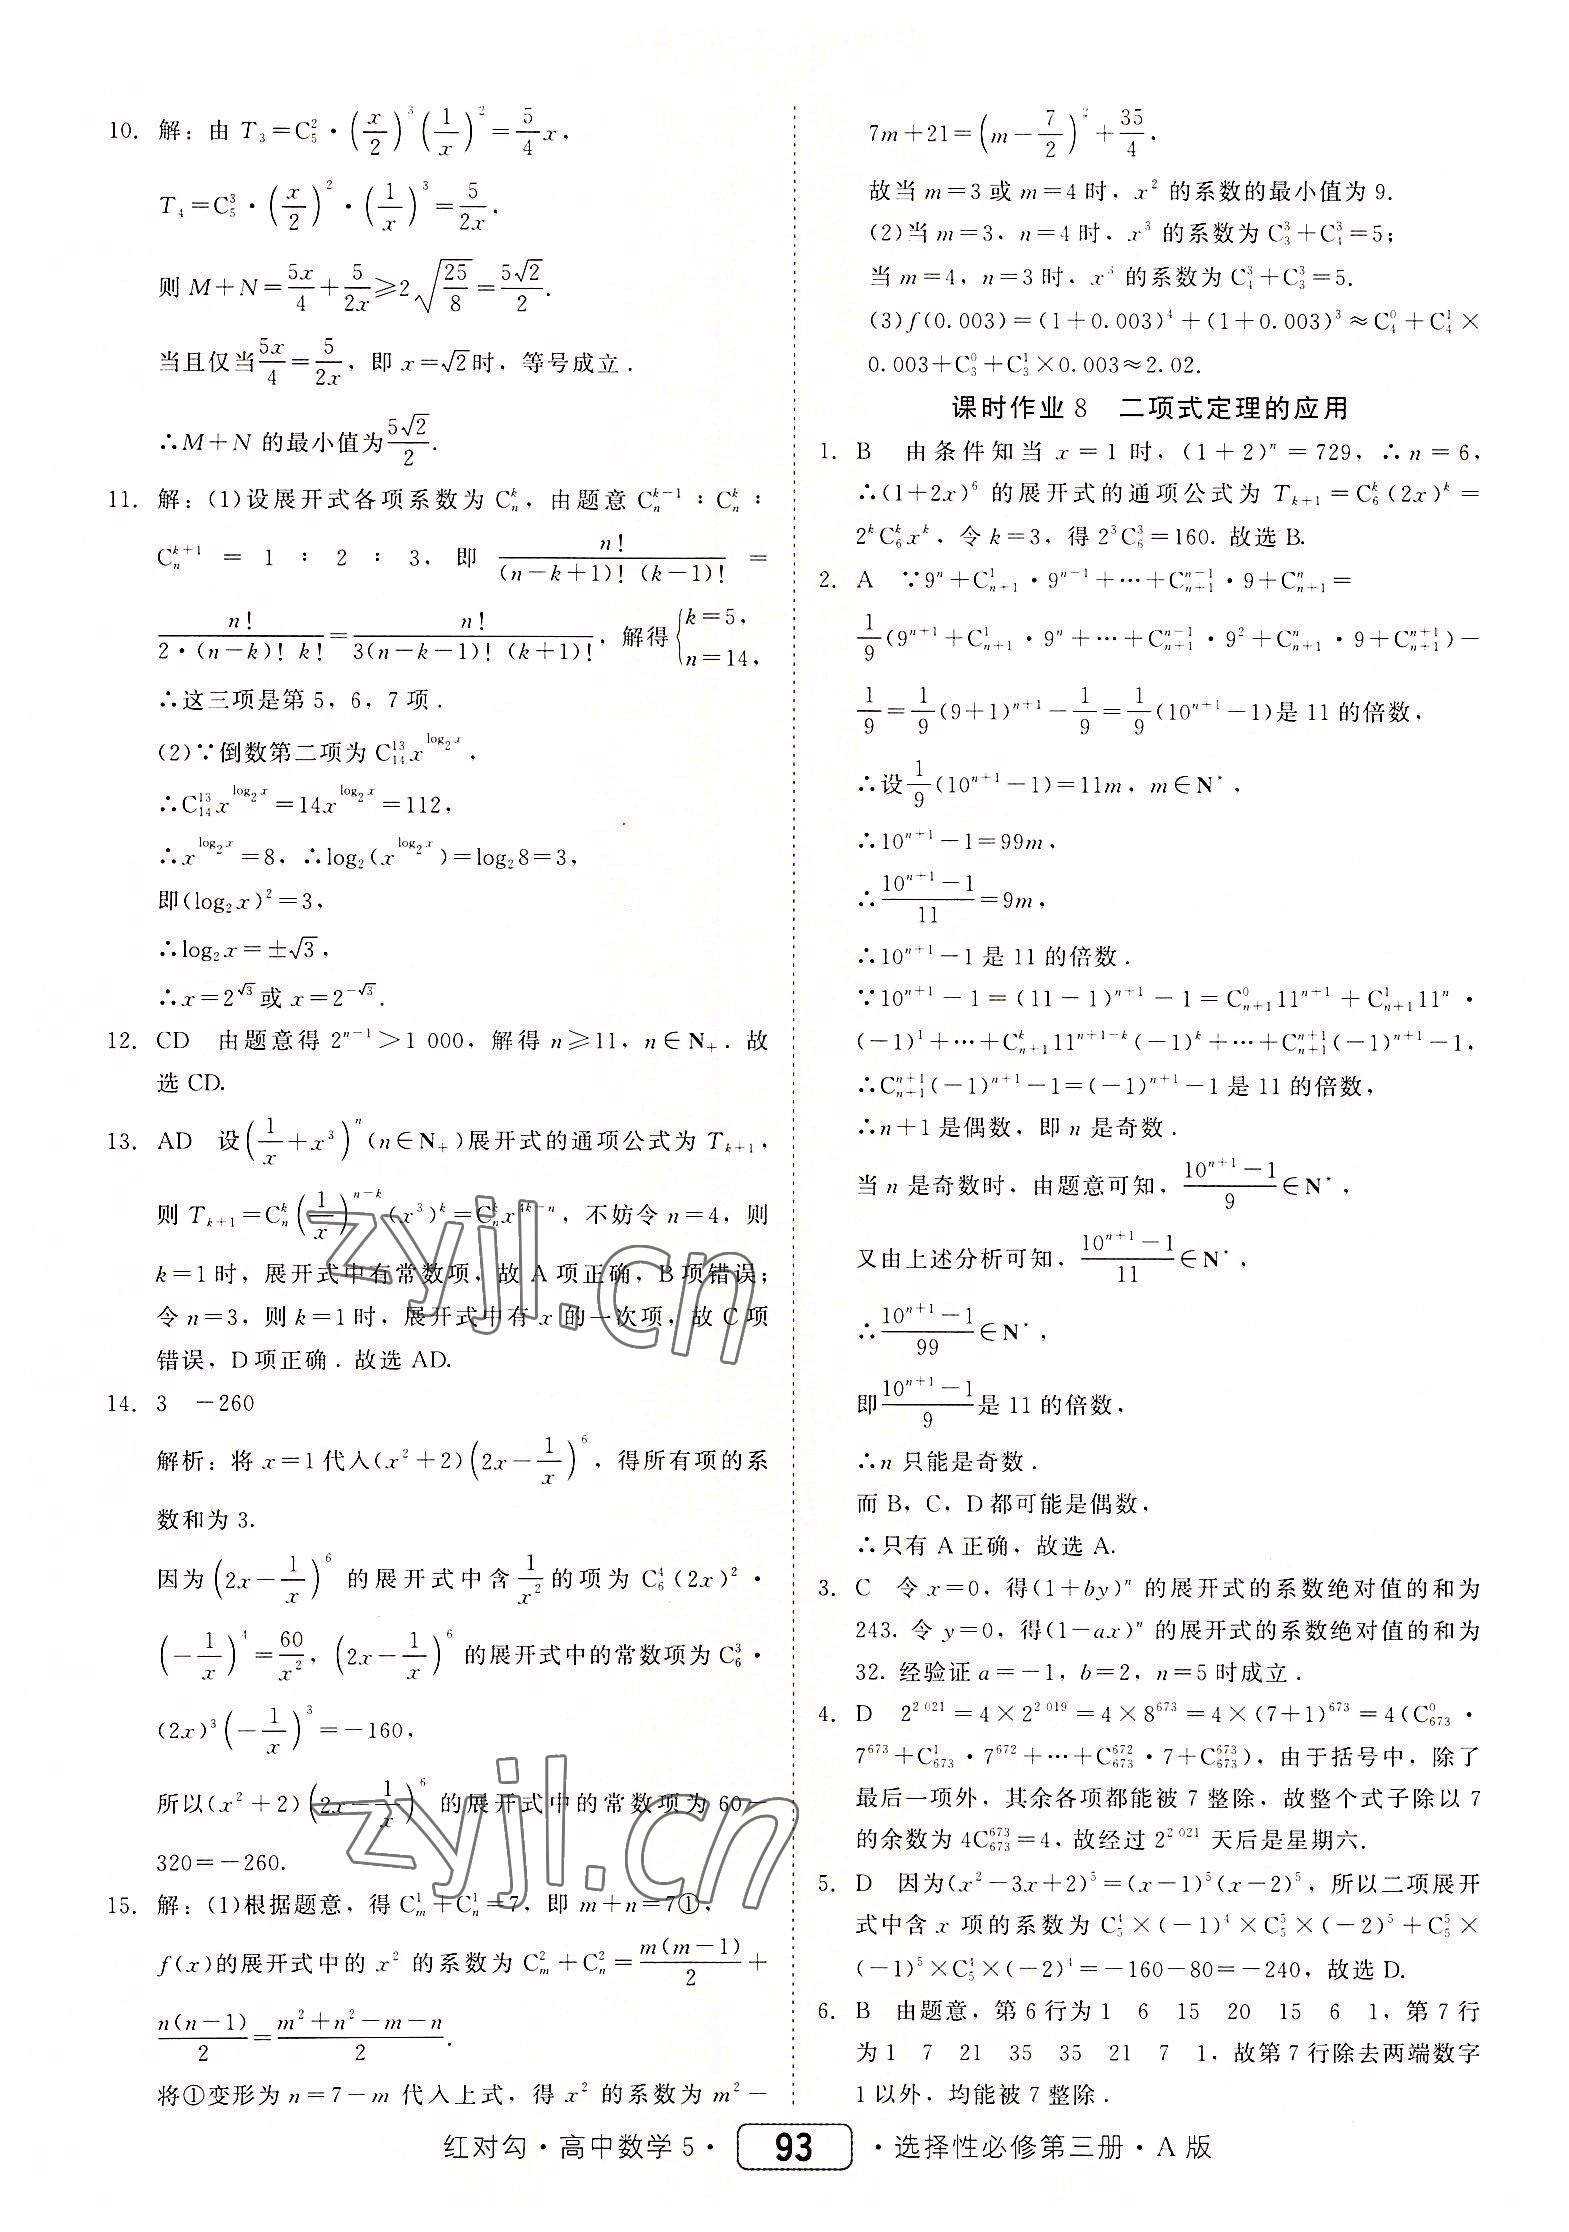 10. 解：由 T₃=C₅²·(x/2)³(1/x)²=5/4 x，
T₄=C₅³·(x/2)²·(1/x)³=5/(2x)，
则 M+N=5x/4+5/(2x)≥2√(25/8)=5√2/2.
当且仅当5x/4=5/(2x)，即 x=√2时，等号成立.
∴M+N 的最小值为5√2/2.
11. 解：(1)设展开式各项系数为 C_n^k，由题意 C_n^{k-1}∶C_n^k∶
C_n^{k+1}=1∶2∶3，即 n!/((n-k+1)!(k-1)!)=
n!/(2·(n-k)!k!)=n!/(3(n-k-1)!(k+1)!)，解得{k=5，n=14，
∴这三项是第 5，6，7 项.
(2)∵倒数第二项为 C_{14}^{13}x^{log₂x}，
∴C_{14}^{13}x^{log₂x}=14x^{log₂x}=112，
∴x^{log₂x}=8，∴log₂(x^{log₂x})=log₂8=3，
即(log₂x)²=3，
∴log₂x=±√3，
∴x=2^{√3}或 x=2^{-√3}.
12. CD 由题意得 2^{n-1}>1 000，解得 n≥11，n∈N₊. 故
选 CD.
13. AD 设(1/x+x³)^n(n∈N₊)展开式的通项公式为 T_{k+1}，
则 T_{k+1}=C_n^k(1/x)^{n-k}(x³)^k=C_n^k x^{4k-n}，不妨令 n=4，则
k=1时，展开式中有常数项，故 A 项正确，B项错误；
令 n=3，则 k=1时，展开式中有 x 的一次项，故 C 项
错误，D 项正确. 故选 AD.
14. 3 -260
解析：将 x=1代入(x²+2)(2x-1/x)⁶，得所有项的系
数和为 3.
因为(2x-1/x)⁶ 的展开式中含1/x²的项为 C₆⁴(2x)²·
(-1/x)⁴=60/x²，(2x-1/x)⁶ 的展开式中的常数项为 C₆³·
(2x)³(-1/x)³=-160，
所以(x²+2)(2x-1/x)⁶ 的展开式中的常数项为 60-
320=-260.
15. 解：(1)根据题意，得 C_m^1+C_n^1=7，即 m+n=7①，
f(x)的展开式中的 x² 的系数为 C_m^2+C_n^2=m(m-1)/2+
n(n-1)/2=(m²+n²-m-n)/2.
将①变形为 n=7-m 代入上式，得 x² 的系数为 m²-
7m+21=(m-7/2)²+35/4，
故当 m=3 或 m=4 时，x² 的系数的最小值为 9.
(2)当 m=3，n=4 时，x³ 的系数为 C₃³+C₄³=5；
当 m=4，n=3 时，x³ 的系数为 C₄³+C₃³=5.
(3)f(0.003)=(1+0.003)⁴+(1+0.003)³≈C₄⁰+C₄¹×
0.003+C₃⁰+C₃¹×0.003≈2.02.
课时作业 8 二项式定理的应用
1. B 由条件知当 x=1 时，(1+2)^n=729，∴n=6，
∴(1+2x)⁶ 的展开式的通项公式为 T_{k+1}=C₆^k(2x)^k=
2^kC₆^kx^k，令 k=3，得 2³C₆³=160. 故选 B.
2. A ∵9^n+C_{n+1}^1·9^{n-1}+…+C_{n+1}^{n-1}·9+C_{n+1}^n=
1/9(9^{n+1}+C_{n+1}^1·9^n+…+C_{n+1}^{n-1}·9²+C_{n+1}^n·9+C_{n+1}^{n+1})-
1/9=1/9(9+1)^{n+1}-1/9=1/9(10^{n+1}-1)是 11 的倍数，
∴设1/9(10^{n+1}-1)=11m，m∈N*，
∴10^{n+1}-1=99m，
∴(10^{n+1}-1)/11=9m，
∴10^{n+1}-1 是 11 的倍数.
∵10^{n+1}-1=(11-1)^{n+1}-1=C_{n+1}^0 11^{n+1}+C_{n+1}^1 11^n·
(-1)¹+…+C_{n+1}^k 11^{n+1-k}(-1)^k+…+C_{n+1}^{n+1}(-1)^{n+1}-1，
∴C_{n+1}^{n+1}(-1)^{n+1}-1=(-1)^{n+1}-1 是 11 的倍数，
∴n+1 是偶数，即 n 是奇数.
当 n 是奇数时，由题意可知，(10^{n+1}-1)/9∈N*，
又由上述分析可知，(10^{n+1}-1)/11∈N*，
∴(10^{n+1}-1)/99∈N*，
即(10^{n+1}-1)/9是 11 的倍数，
∴n 只能是奇数.
而 B，C，D 都可能是偶数，
∴只有 A 正确，故选 A.
3. C 令 x=0，得(1+by)^n 的展开式的系数绝对值的和为
243. 令 y=0，得(1-ax)^n 的展开式的系数绝对值的和为
32. 经验证 a=-1，b=2，n=5 时成立.
4. D 2^{2 021}=4×2^{2 019}=4×8^{673}=4×(7+1)^{673}=4(C_{673}^0·
7^{673}+C_{673}^1·7^{672}+…+C_{673}^{672}·7+C_{673}^{673})，由于括号中，除了
最后一项外，其余各项都能被 7 整除，故整个式子除以 7
的余数为 4C_{673}^{673}=4，故经过 2^{2 021} 天后是星期六.
5. D 因为(x²-3x+2)⁵=(x-1)⁵(x-2)⁵，所以二项展开
式中含 x 项的系数为 C₅⁴×(-1)⁴×C₅⁵×(-2)⁵+C₅⁵×
(-1)⁵×C₅⁴×(-2)⁴=-160-80=-240，故选 D.
6. B 由题意，第 6 行为 1 6 15 20 15 6 1，第 7 行
为 1 7 21 35 35 21 7 1，故第 7 行除去两端数字
1 以外，均能被 7 整除.
红对勾·高中数学 5· 93 ·选择性必修第三册·A 版
zyjl.cn
zyjl.cn